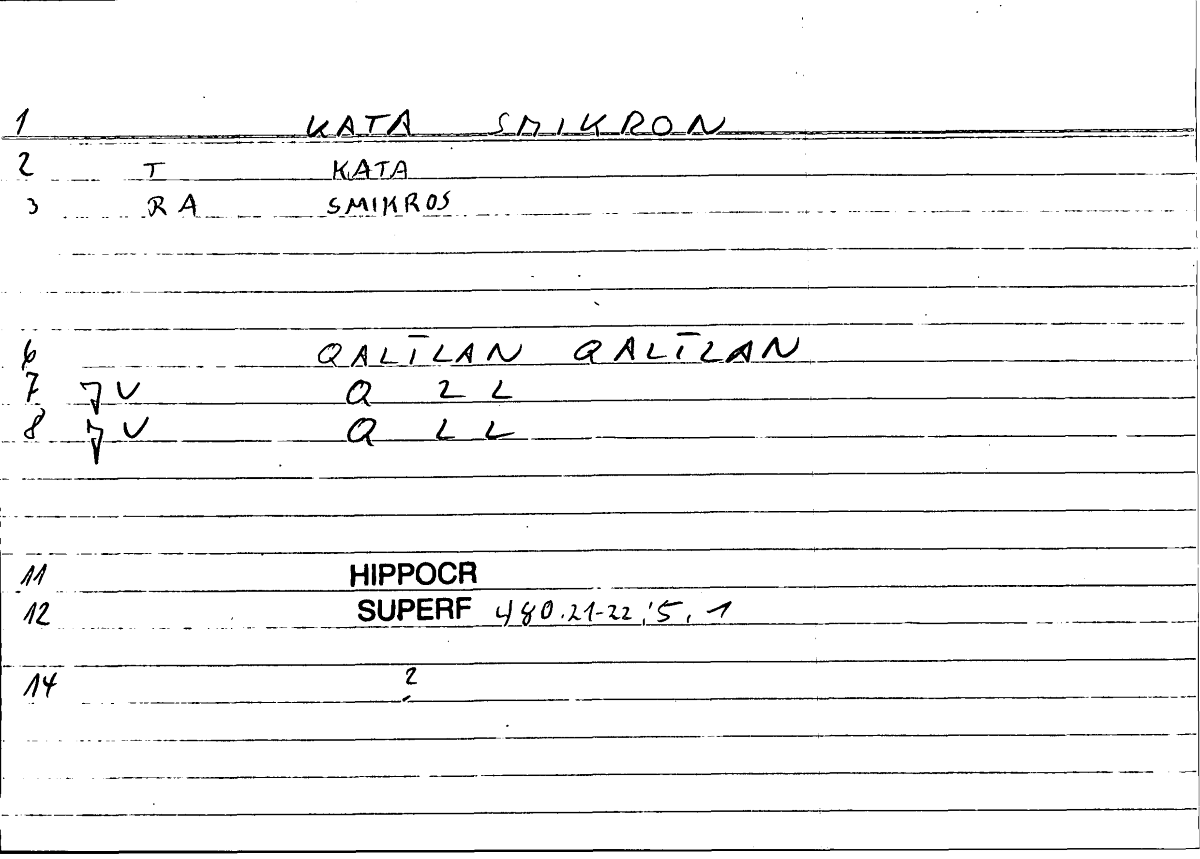 1 KATA SMIKRON
2 T KATA
3 RA SMIKROS
6 QALĪLAN QALĪLAN
7 V Q L L
8 V Q L L
11 HIPPOCR
12 SUPERF 480.21-22;5,1
14 2